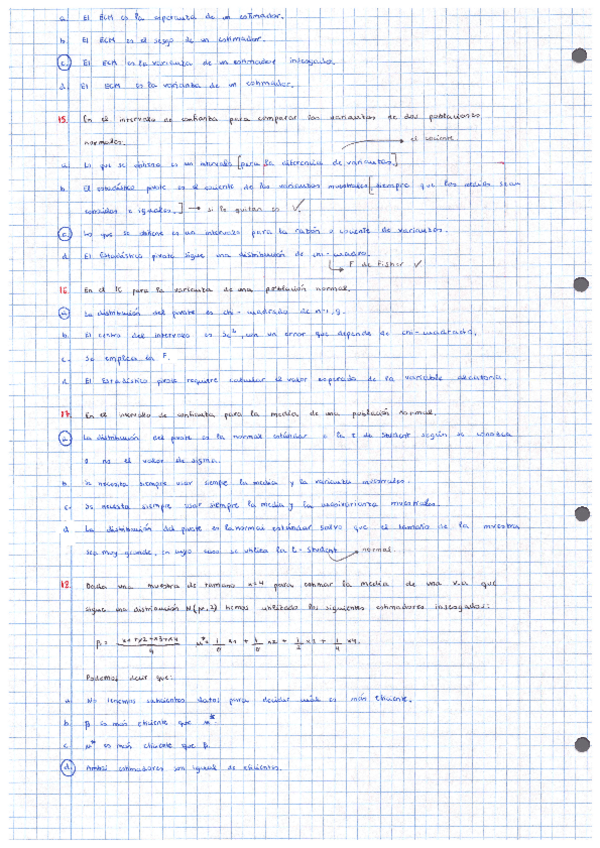 a. El ECM es la esperanza de un estimador.
b. El ECM es el sesgo de un estimador.
c. El ECM es la varianza de un estimador insesgado.
d. El ECM es la varianza de un estimador.
15. En el intervalo de confianza para comparar las varianzas de dos poblaciones
normales.
el cociente
a. Lo que se obtiene es un intervalo [para la diferencia de varianzas]
b. El estadístico pivote es el cociente de las varianzas muestrales [siempre que las medias sean
conocidas e iguales.] → si le quitan es ✓
c. Lo que se obtiene es un intervalo para la razón o cociente de varianzas.
d. El Estadístico pivote sigue una distribución de chi-cuadro.
F de Fisher ✓
16. En el IC para la varianza de una población normal.
a. La distribución del pivote es chi-cuadrado de n-1 g.
b. El centro del intervalo es con un error que depende de chi-cuadrado.
c. Se emplea la F.
d. El Estadístico pivote requiere calcular el valor esperado de la variable aleatoria.
17. En el intervalo de confianza para la media de una población normal.
a. La distribución del pivote es la normal estándar o la t de Student según se conozca
o no el valor de sigma.
b. Se necesita siempre usar siempre la media y la varianza muestrales.
c. Se necesita siempre usar siempre la media y la cuasivarianza muestrales.
d. La distribución del pivote es la normal estándar salvo que el tamaño de la muestra
sea muy grande, en cuyo caso se utiliza la t-Student normal.
18. Dada una muestra de tamaño n=4 para estimar la media de una v.a que
sigue una distribución N(μ,2) hemos utilizado los siguientes estimadores insesgados:
Podemos decir que:
a. No tenemos suficientes datos para decidir cuál es más eficiente.
b. es más eficiente que μ*.
c. μ* es más eficiente que
d. Ambos estimadores son igual de eficientes.